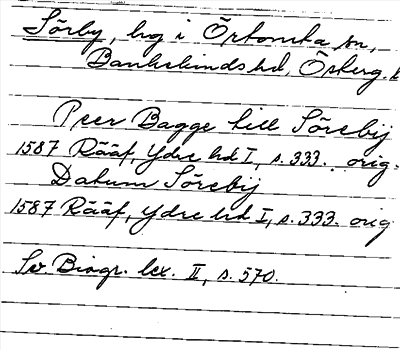 Sörby, hg i Örtomta sn,
Bankekinds hd, Österg. l
Peer Bagge till Sörebij
1587 Rääf, Ydre hd I, s. 333. orig.
Datum Sörebij
1587 Rääf, Ydre hd I, s. 333. orig
Sv. Biogr. lex. II, s. 570.